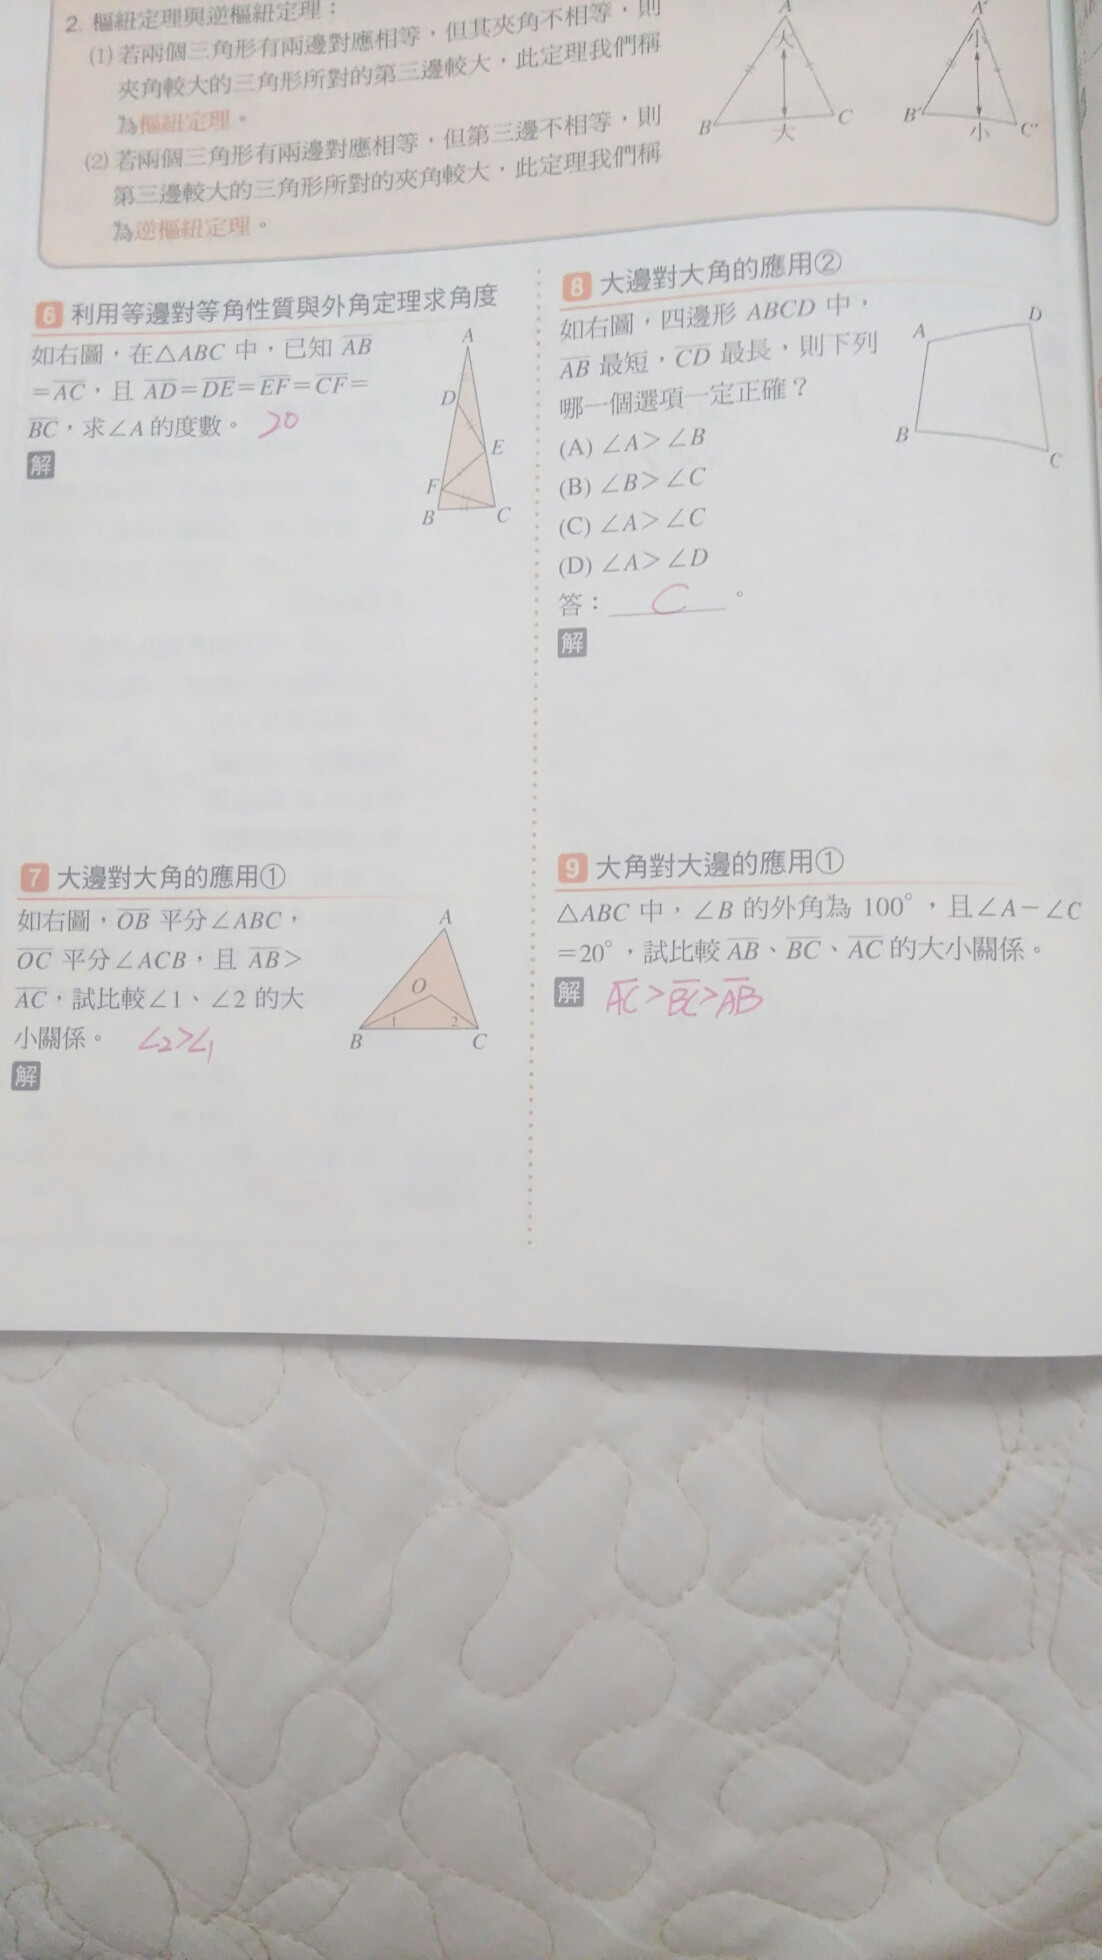 2. 樞紐定理與逆樞紐定理：
⑴ 若兩個三角形有兩邊對應相等，但其夾角不相等，則
夾角較大的三角形所對的第三邊較大，此定理我們稱
為樞紐定理。
⑵ 若兩個三角形有兩邊對應相等，但第三邊不相等，則
第三邊較大的三角形所對的夾角較大，此定理我們稱
為逆樞紐定理。
A
大
B
大
C
A'
小
B'
小
C'
6 利用等邊對等角性質與外角定理求角度
如右圖，在△ABC 中，已知 A̅B̅
＝A̅C̅，且 A̅D̅＝D̅E̅＝E̅F̅＝C̅F̅＝
B̅C̅，求∠A 的度數。 20
解
A
D
E
F
B
C
7 大邊對大角的應用①
如右圖，O̅B̅ 平分∠ABC，
O̅C̅ 平分∠ACB，且 A̅B̅＞
A̅C̅，試比較∠1、∠2 的大
小關係。 ∠2>∠1
解
A
O
1
2
B
C
8 大邊對大角的應用②
如右圖，四邊形 ABCD 中，
A̅B̅ 最短，C̅D̅ 最長，則下列
哪一個選項一定正確？
(A) ∠A＞∠B
(B) ∠B＞∠C
(C) ∠A＞∠C
(D) ∠A＞∠D
答：C。
解
A
D
B
C
9 大角對大邊的應用①
△ABC 中，∠B 的外角為 100°，且∠A－∠C
＝20°，試比較 A̅B̅、B̅C̅、A̅C̅ 的大小關係。
解 A̅C̅>B̅C̅>A̅B̅